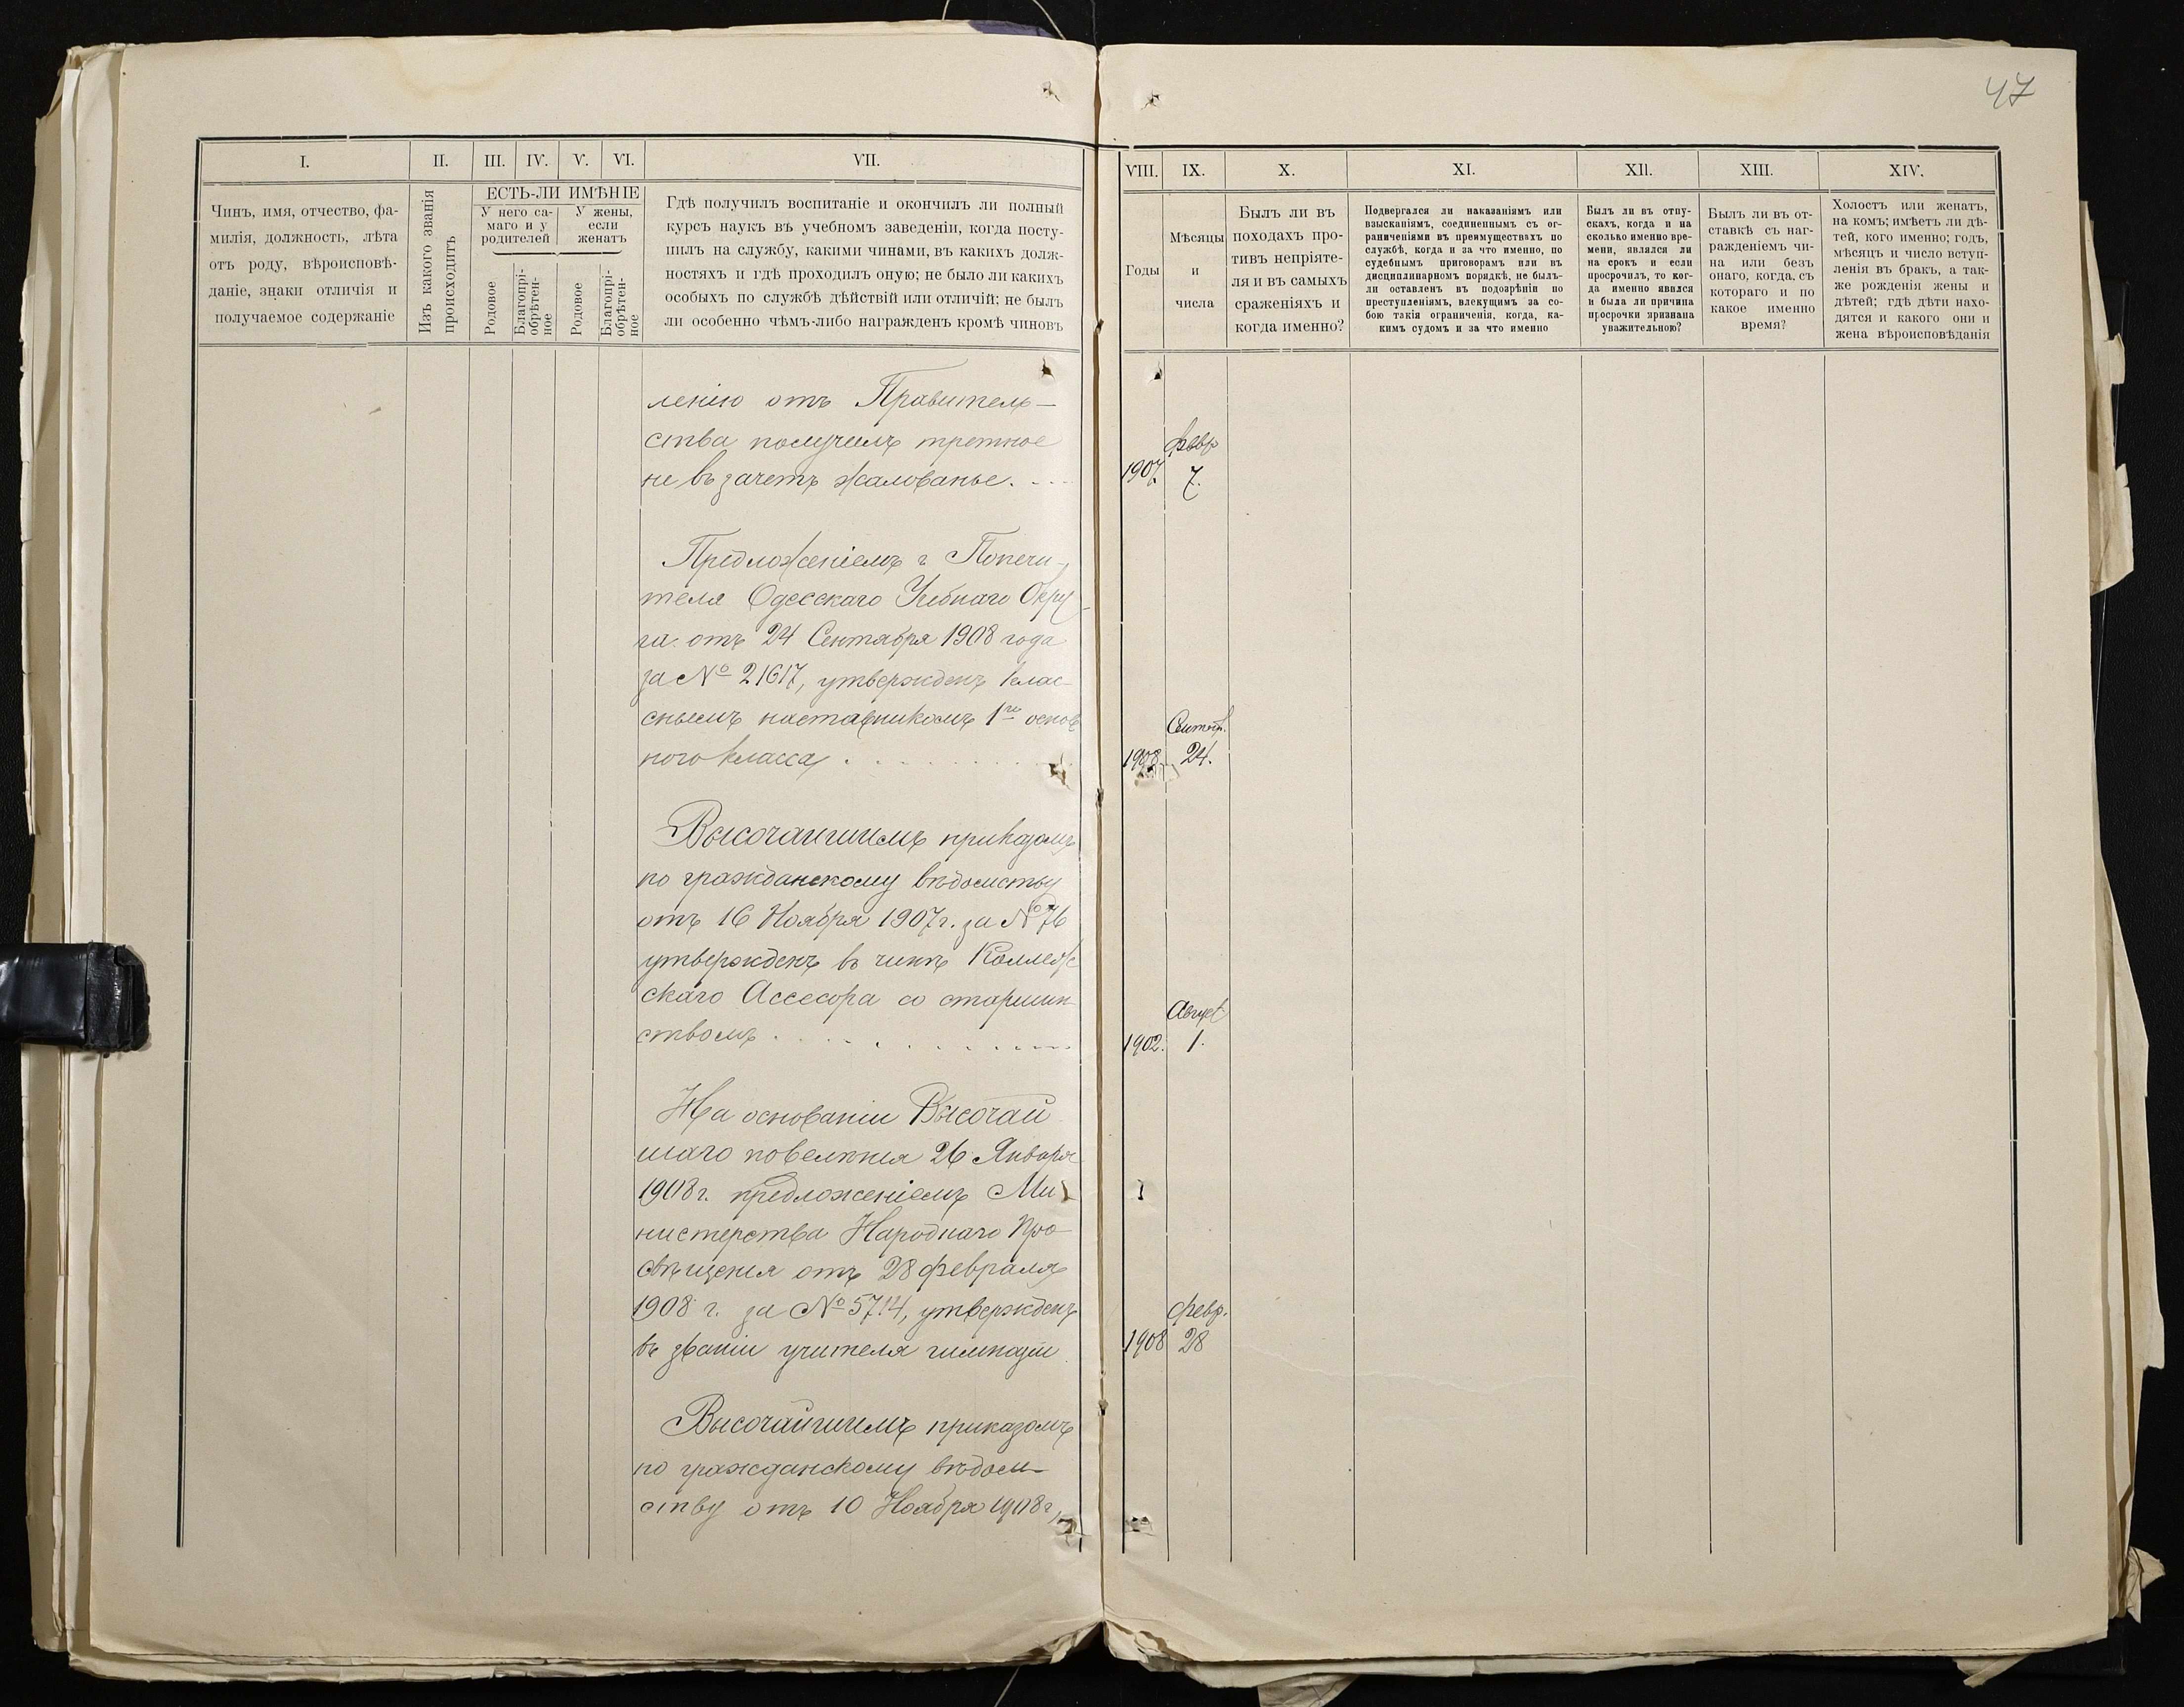 47
I.
II.
III.
IV.
V.
VI.
VII.
VIII.
IX.
X.
XI.
XII.
XIII.
XIV.
Чинъ, имя, отчество, фа-
милія, должность, лѣта
отъ роду, вѣроисповѣ-
даніе, знаки отличія и
получаемое содержаніе
Изъ какого званія
происходитъ
ЕСТЬ-ЛИ ИМѢНІЕ
У него са-
маго и у
родителей
У жены,
если
женатъ
Родовое
Благопрі-
обрѣтен-
ное
Родовое
Благопрі-
обрѣтен-
ное
Гдѣ получилъ воспитаніе и окончилъ ли полный
курсъ наукъ въ учебномъ заведеніи, когда посту-
пилъ на службу, какими чинами, въ какихъ долж-
ностяхъ и гдѣ проходилъ оную; не было ли какихъ
особыхъ по службѣ дѣйствій или отличій; не былъ
ли особенно чѣмъ-либо награжденъ кромѣ чиновъ
Годы
Мѣсяцы
и
числа
Былъ ли въ
походахъ про-
тивъ непріяте-
ля и въ самыхъ
сраженіяхъ и
когда именно?
Подвергался ли наказаніямъ или
взысканіямъ, соединеннымъ съ ог-
раниченіями въ преимуществахъ по
службѣ, когда и за что именно, по
судебнымъ приговорамъ или въ
дисциплинарномъ порядкѣ, не былъ-
ли оставленъ въ подозрѣніи по
преступленіямъ, влекущимъ за со-
бою такія ограниченія, когда, ка-
кимъ судомъ и за что именно
Былъ ли въ отпу-
скахъ, когда и на
сколько именно вре-
мени, являлся ли
на срокъ и если
просрочилъ, то ког-
да именно явился
и была ли причина
просрочки признана
уважительною?
Былъ ли въ от-
ставкѣ съ наг-
ражденіемъ чи-
на или безъ
онаго, когда, съ
котораго и по
какое именно
время?
Холостъ или женатъ,
на комъ; имѣетъ ли дѣ-
тей, кого именно; годъ,
мѣсяцъ и число вступ-
ленія въ бракъ, а так-
же рожденія жены и
дѣтей; гдѣ дѣти нахо-
дятся и какого они и
жена вѣроисповѣданія
ленію отъ Правитель-
ства получилъ третное
не въ зачетъ жалованье.
1907. февр 7.
Предложеніемъ г. Попечи-
теля Одесскаго Учебнаго Окру-
га отъ 24 Сентября 1908 года
за № 21617, утвержденъ клас-
снымъ наставникомъ 1го основ
ного класса
1908. Сентяр. 24.
Высочайшимъ приказомъ
по гражданскому вѣдомству
отъ 16 Ноября 1907 г. за № 76
утвержденъ въ чинѣ Коллеж
скаго Ассесора со старшин
ствомъ
1902. Август 1.
На основаніи Высочай
шаго повелѣнія 26 Января
1908 г. предложеніемъ Ми-
нистерства Народнаго Про
свѣщенія отъ 28 февраля
1908 г. за № 5714, утвержденъ
въ званіи учителя гимназіи
1908 февр. 28
Высочайшимъ приказомъ
по гражданскому вѣдом-
ству отъ 10 Ноября 1908 г,